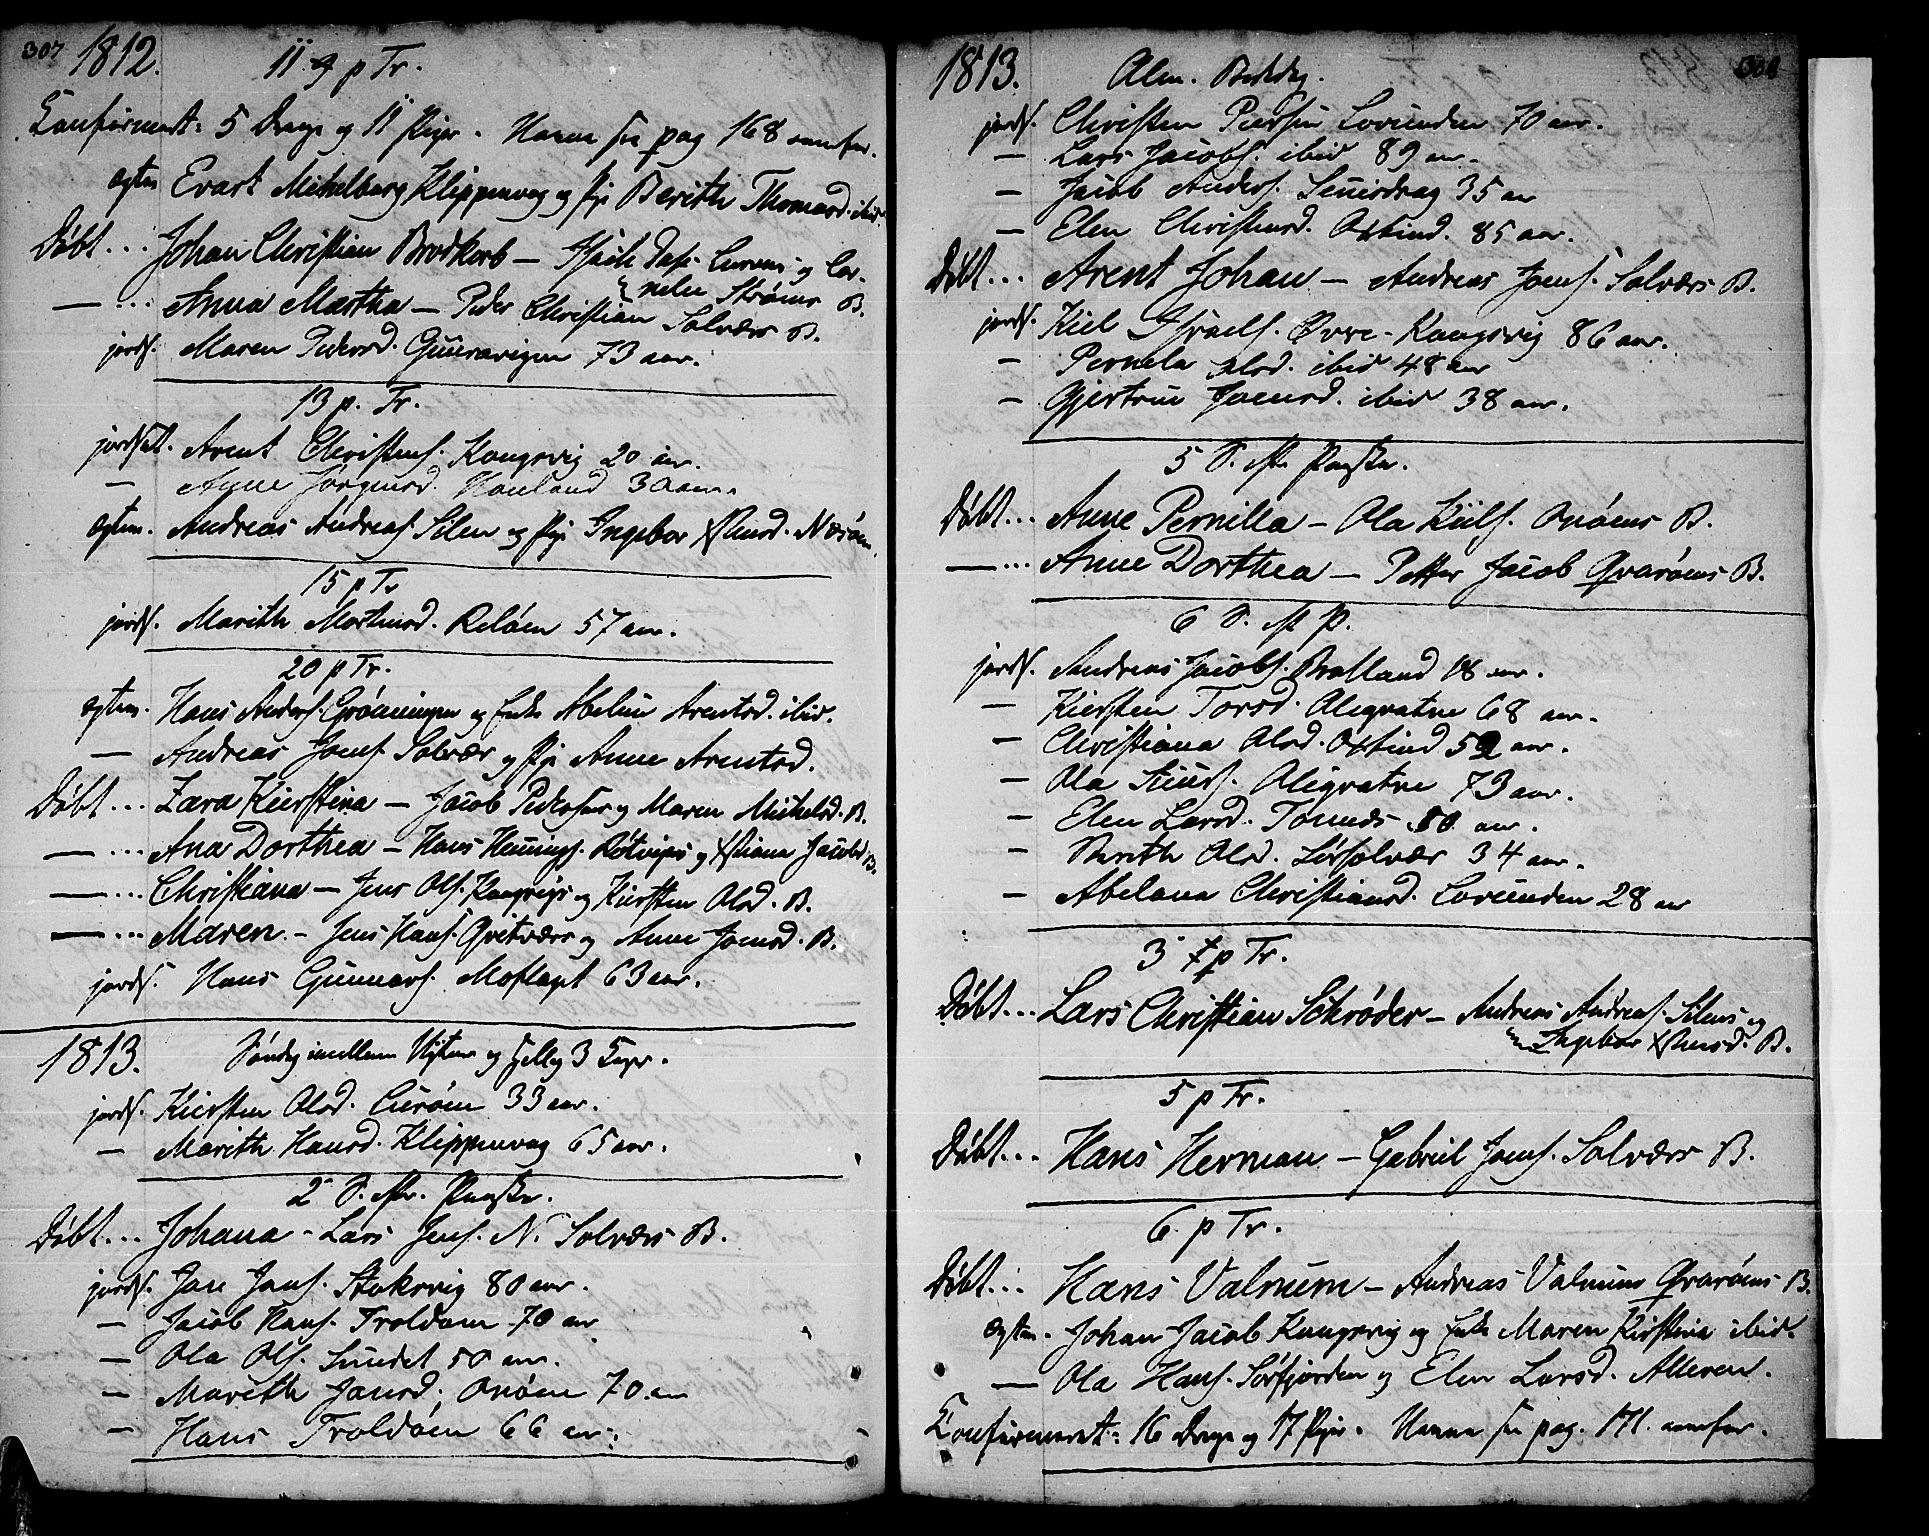 307 1812. 11 p Tr.
Confirmert: 5 Drenge og 11 Piger. Navne see pag 168 ovenfor.
egtev Evart Mickelborg Klippenvog og Pige Berith Thomasd. ibid.
Døbt... Johan Christian Brodkorb - Lurøens og Cor-
nelia Strøms B.
—... Anna Martha - Peder Christian Solværs B.
jords. Maren Pedersd. Gunnarvigen 73 aar.
13 p. Tr.
jordsat. Arent Christens. Kongsvig 20 aar.
— Anne Jørgensd. Houland 30 aar.
egtev. Andreas Andreas. Selen og Pige Ingebor Xstensd. Næsøen.
15 p Tr
jords. Marith Mortensd. Reløen 57 aar.
20 p Tr.
egtev. Hans Anders. Grønningen og Enke Abelin Arentsd. ibid.
— Andreas Joens. Solvær og Pige Anne Arentsd.
Døbt... Zara Kierstina - Jacob Pedersens og Maren Michelsd. B.
—... Ana Dorthea - Hans Hennings. Røtvigs og Xstiana Jacobsd B.
—... Christiana - Jens Ols. Kongsvigs og Kiersten Olsd. B.
—... Maren - Jens Hans. Qvitværs og Anne Joensd. B.
jords. Hans Gunnars. Moflagt 63 aar.
1813. Søndag imellem Nytaar og Hellig 3 Konger.
jords. Kiersten Olsd. Lurøen 33 aar.
— Marith Hansd. Klippenvog 65 aar.
2 S. eft. Paaske.
Døbt... Johana - Lars Jens. N. Solværs B.
jords. Jon Jons. Stoksvig 80 aar.
— Jacob Hans. Troldøen 70 aar
— Ola Ols. Sundet 50 aar.
— Marith Jonsd. Onøen 70 aar
— Hans Troldøen 66 aar.
1813. Alm. Bededag. 308
jords. Christen Peders. Lovunden 70 aar.
— Lars Jacobs. ibid 89 aar.
— Jacob Anders. 35 aar
— Elen Christensd. Oxtind. 85 aar.
Døbt... Arent Johan - Andreas Joens. Solværs B.
jords. Kiel Israels. Øvre-Kongsvig 86 aar.
— Pernela Olsd. ibid 48 aar
— Gjertrue Joensd. ibid 38 aar.
5 S. eft. Paaske.
Døbt... Anne Pernilla - Ola Kiels. Onøens B.
—... Anne Dorthea - Petter Jacob Qvarøens B.
6 S. eft P.
jords. Andreas Jacobs. Bratland 18 aar.
— Kiersten Torsd. Aligvatne 68 aar.
— Christiana Olsd. Oxtind 52 aar.
— Ola Siurs. Aligvatne 73 aar.
— Elen Larsd. Tonnes 80 aar.
— Berith Olsd. Sørsolvær 34 aar.
— Abelana Christiansd. Lovunden 28 aar
3 p Tr.
Døbt... Lars Christian Schrøder - Andreas Andreas. Selens og
Ingebor Xstensd. B.
5 p Tr.
Døbt... Hans Herman - Gabriel Joens. Solværs B.
6 p Tr.
Døbt... Hans Valnum - Andreas Valnums Qvarøens B.
egtev. Johan Jacob Kongsvig og Enke Maren Kirstina ibid.
— Ola Hans. Sørfjorden og Elen Larsd. Alderen.
Confirmeret: 16 Drenge og 17 Piger. Navne see pag. 171. ovenfor.